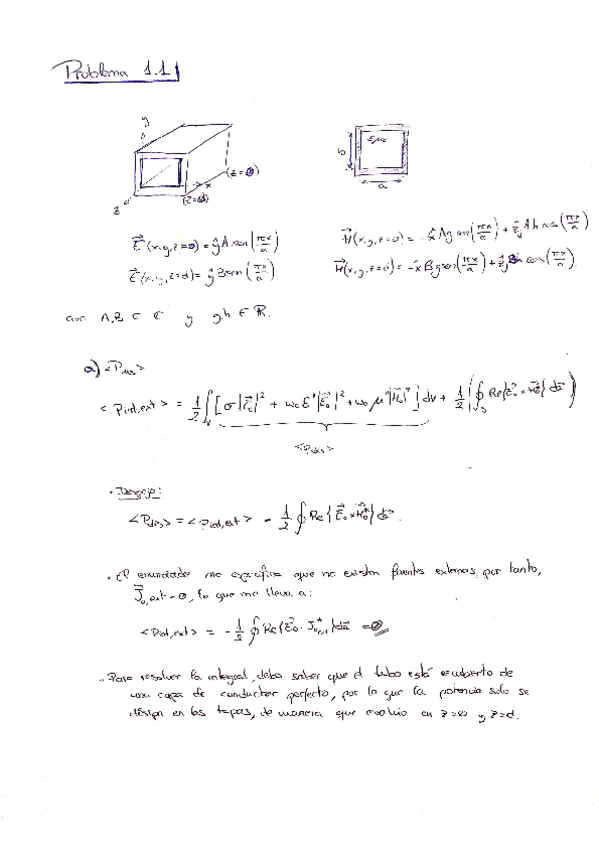 Problema 1.1
y
x
z
(z=0)
(z=d)
b
a
E⃗(x,y,z=0) = ŷ A sen(πx/a)
H⃗(x,y,z=0) = -x̂ Ag sen(πx/a) + ẑ j A h cos(πx/a)
E⃗(x,y,z=d) = ŷ B sen(πx/a)
con A,B ⊂ ℂ y g,h ∈ ℝ.
a) <P_dis>
<P_int,ext> = 1/2 ∫_V [σ|E⃗₀|² + ω₀ε''|E⃗₀|² + ω₀μ''|H⃗₀|²] dv + 1/2 ∮_S Re{E⃗₀ × H⃗₀*} da⃗
<P_dis>
· Despejo:
<P_dis> = <P_int,ext> - 1/2 ∮ Re{E⃗₀ × H⃗₀*} da⃗.
· El enunciado me especifica que no existen fuentes externas, por tanto,
J⃗₀,ext = 0, lo que me lleva a:
<P_int,ext> = -1/2 ∮ Re{E⃗₀ · J⃗₀,ext*} da⃗ = 0
· Para resolver la integral, debo saber que el tubo está recubierto de
una capa de conductor perfecto, por lo que la potencia solo se
disipa en las tapas, de manera que evalúo en z=0 y z=d.